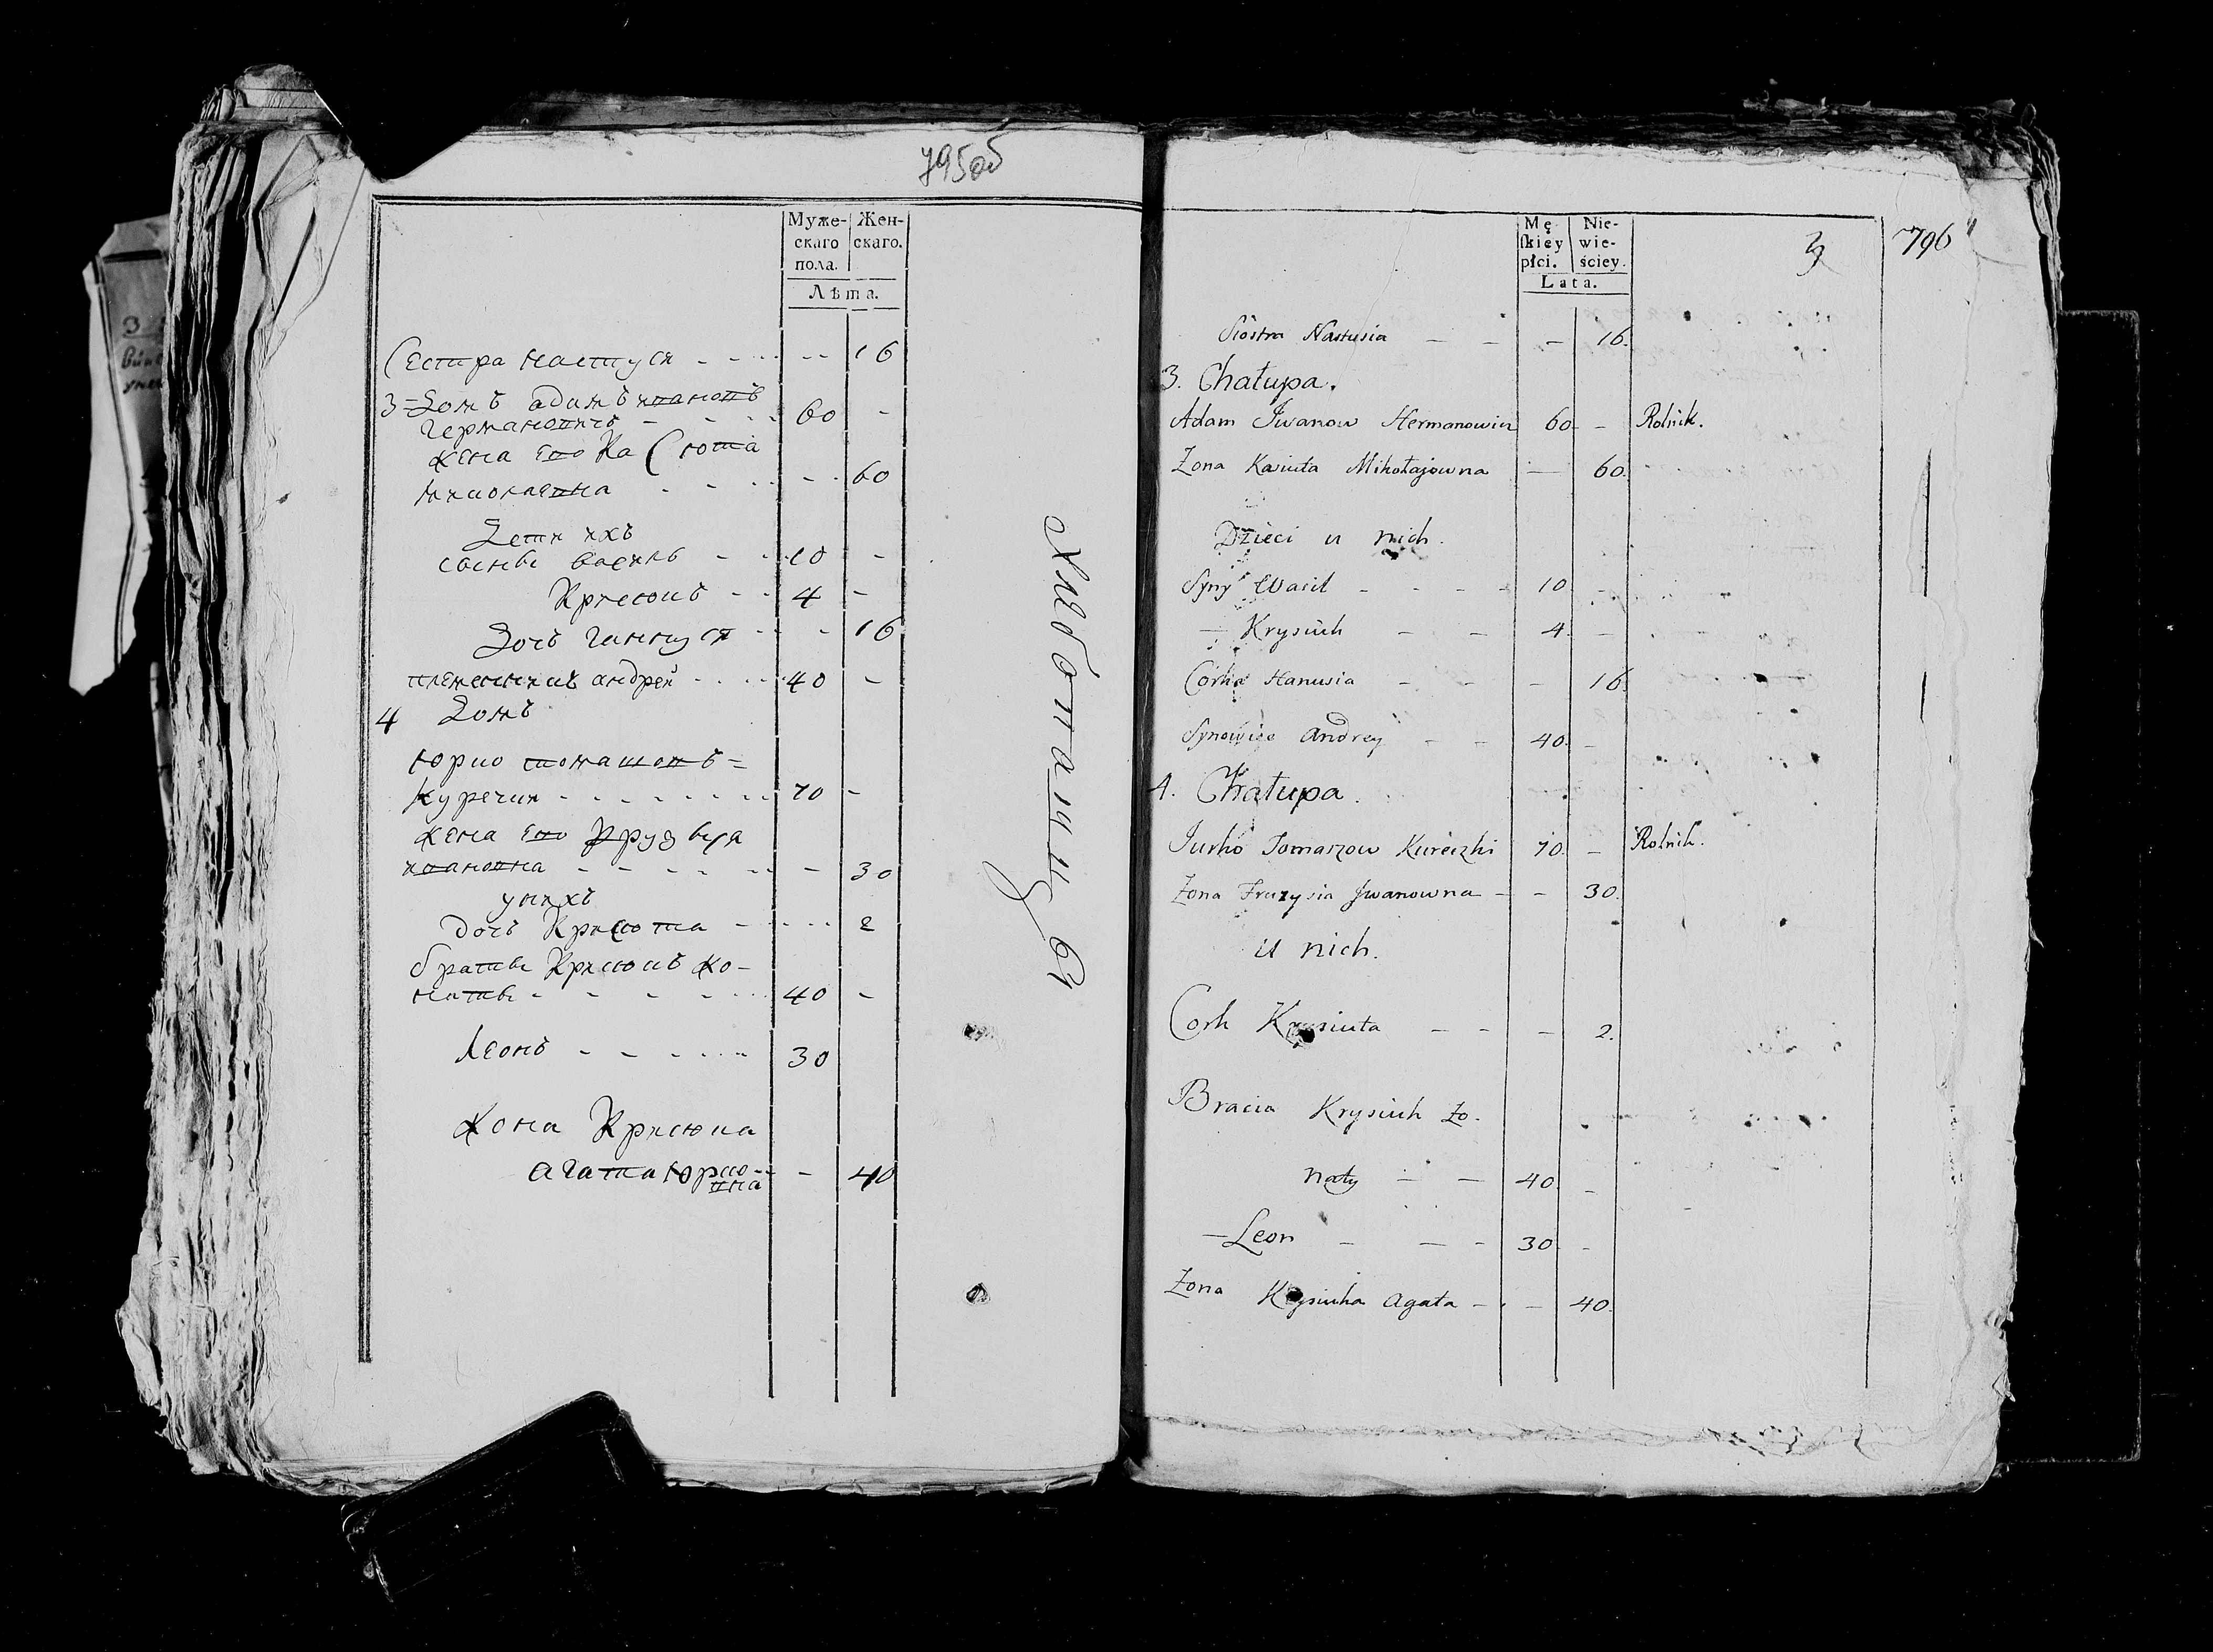 795об
Муже-
скаго
пола.
Жен-
скаго.
Лѣта.
Сестра настуся - - - - - 16
3 = Домъ адамъ ивановъ
германовичъ - - - 60 -
жена его Касюта
миколаевна - - - - - 60
Дети ихъ
сыны василь - - 10 -
Крисюкъ - - 4 -
Дочь ганнуся - - 16
племенникъ андрей - - - 40 -
4 Домъ
юрко томашовъ =
Куречки - - - - - - - 70 -
жена его Фрузыся
ивановна - - - - - - 30
у нихъ
дочь Крисюта - - - - 2
братьи Крисюкъ жо-
наты - - - - - 40 -
Леонъ - - - - - - 30
жона Крисюка
агата Юрко-
вна - - 40
хлебопашцы
Mę
ſkiey
płci.
Nie-
wie-
ściey.
Lata.
3
796
Siostra Nastusia — — — 16.
3. Chałupa.
Adam Jwanow Hermanowicz 60. - Rolnik.
Żona Kasiuta Mikołajowna — 60.
Dzieci u nich.
Syny Wasil - - - - 10 -
— Krysiuk — — 4. -
Córka Hanusia — — — 16.
Synowiec Andrey — — 40. -
4. Chałupa.
Jurko Tomaszow Kureczki 70. - Rolnik.
Żona Fruzysia Jwanowna - - 30.
u nich.
Cork Krysiuta — — — 2.
Bracia Krysiuk żo-
naty — — 40. -
— Leon — — — 30. -
Żona Krysiuka Agata - - - 40.